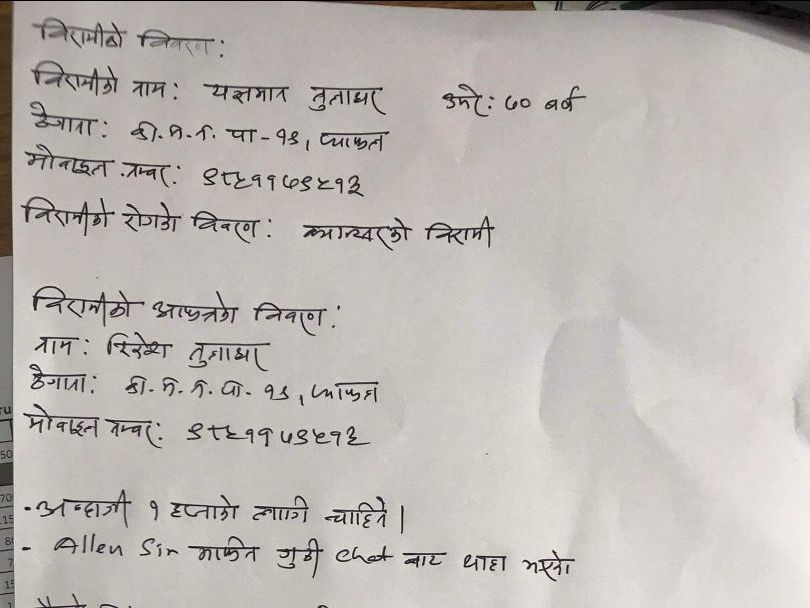 बिरामीको विवरण:
बिरामीको नाम: यज्ञमान तुलाधर उमेर: ७० वर्ष
ठेगाना: का. म. न. पा - १९, प्याफल
मोबाइल नम्बर: ९८५११७९५१३
बिरामीको रोगको विवरण: क्यान्सरको बिरामी
बिरामीको आफन्तको विवरण:
नाम: तुलाधर
ठेगाना: का. म. न. पा. - १९, प्याफल
मोबाइल नम्बर: ९८५११७९५१३
- अन्दाजी १ हप्ताको लागि चाहिने।
- Allen Sir मार्फत गुठी chat बाट थाहा भएको